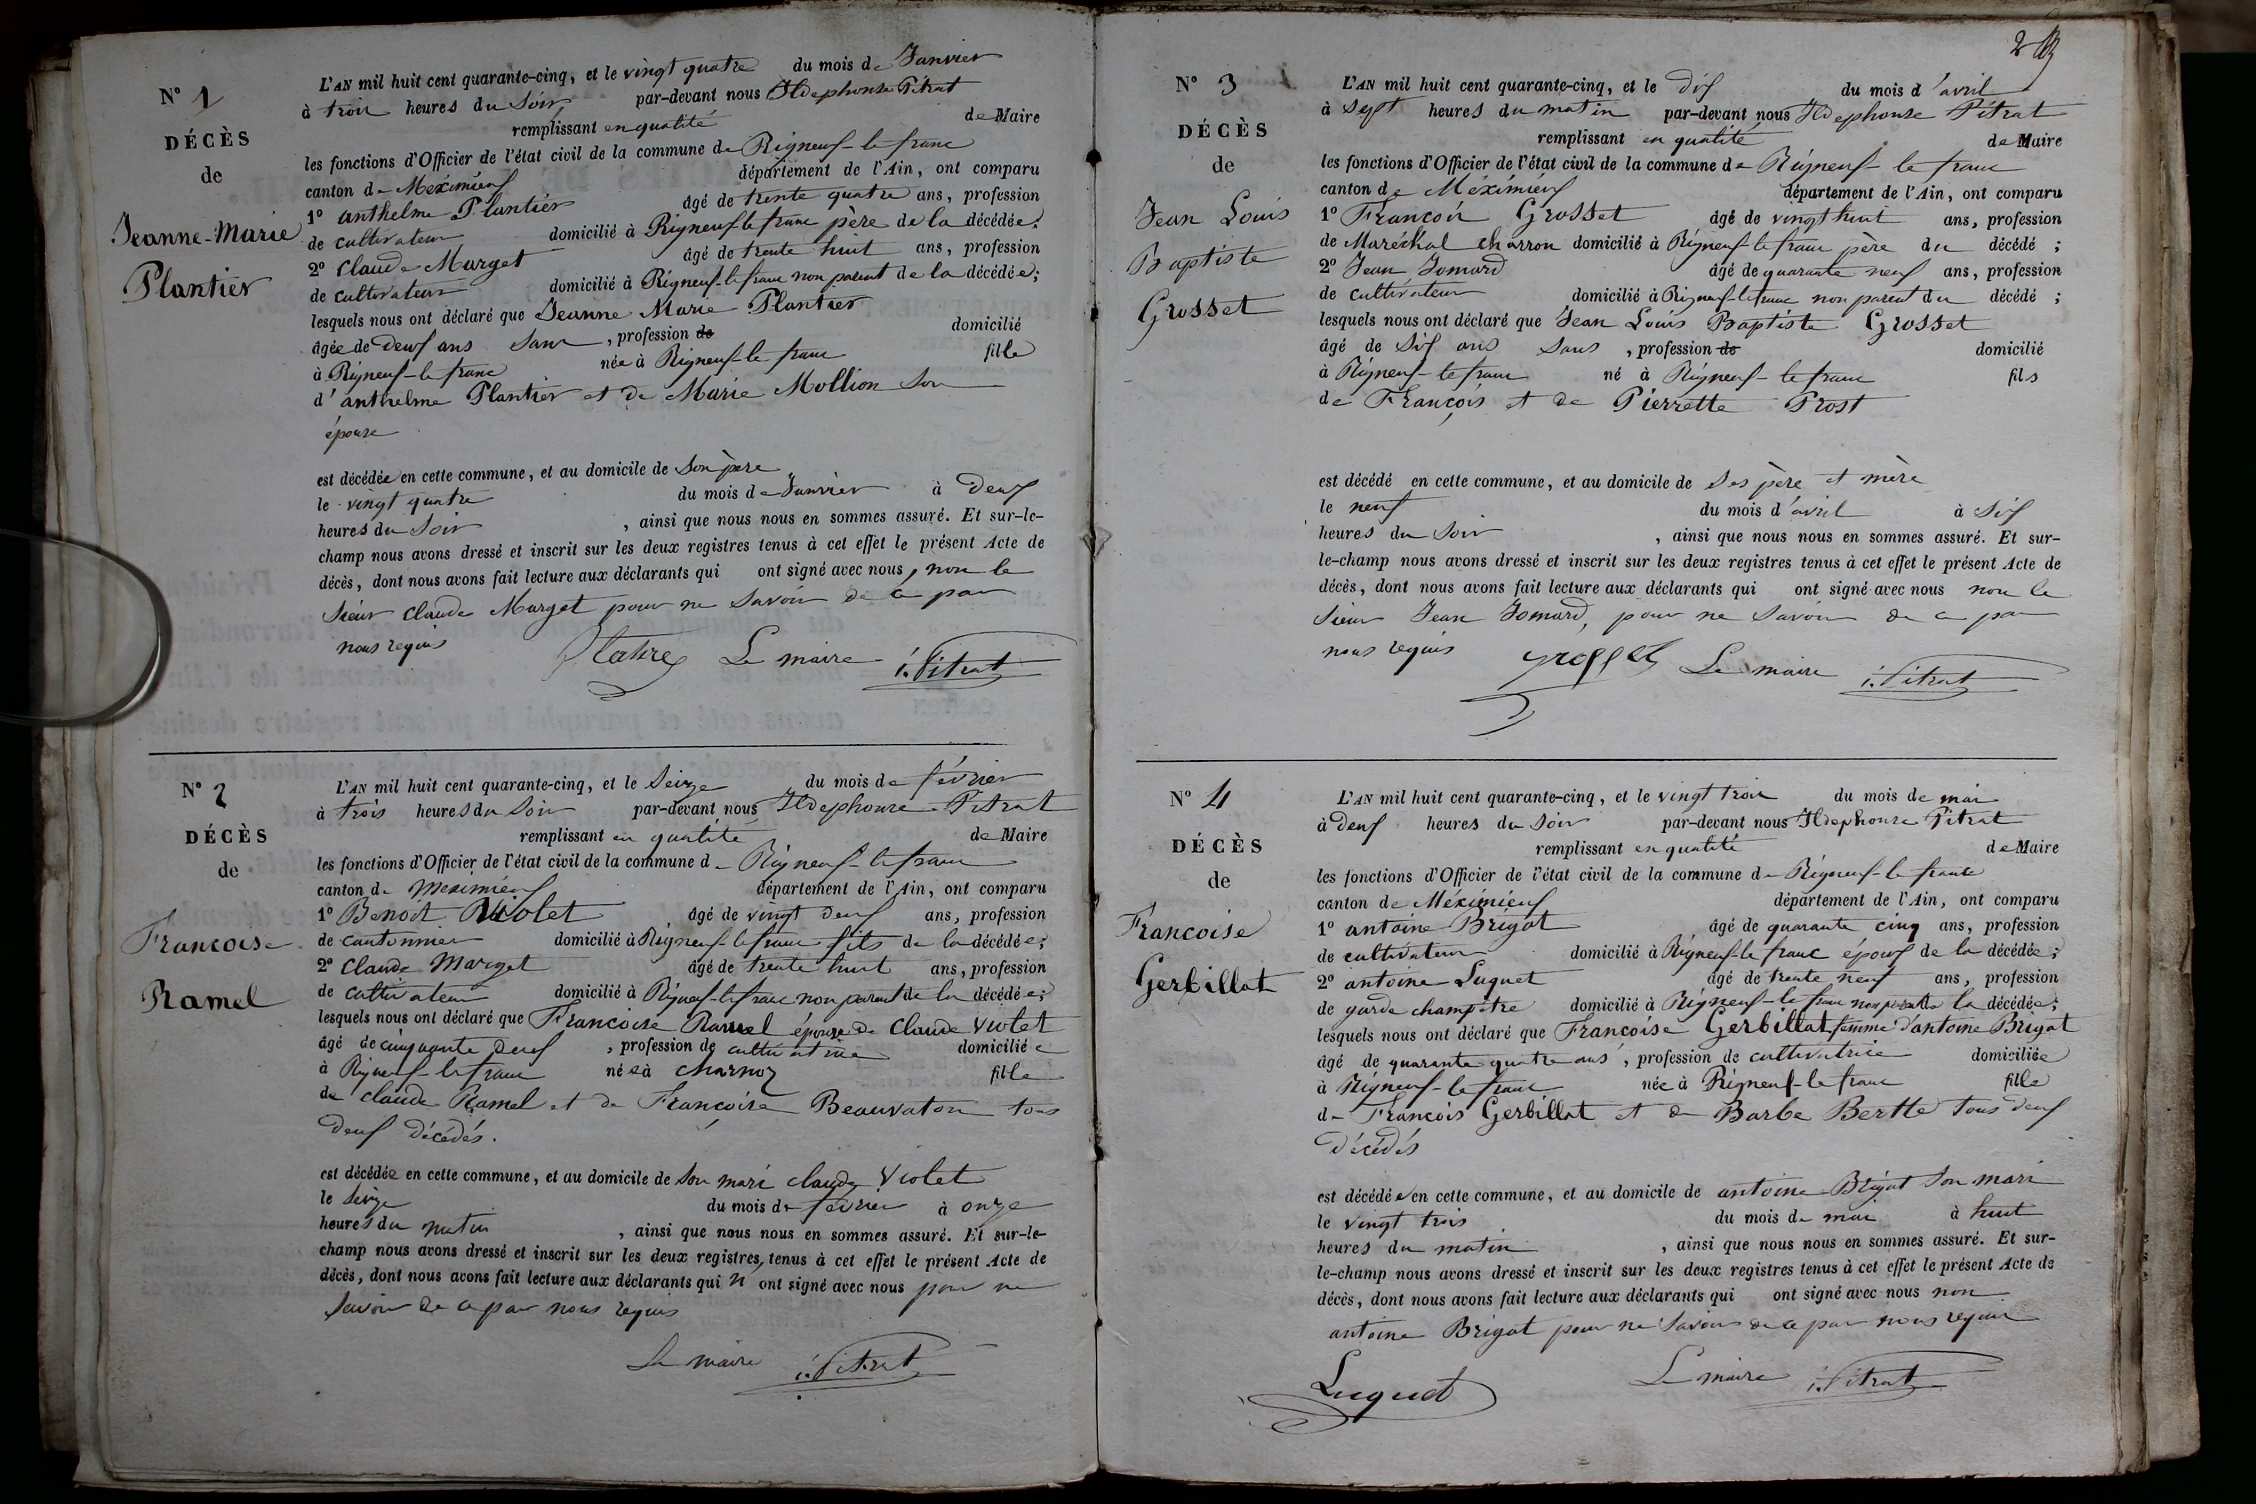 N° 1
DÉCÈS
de
Jeanne-Marie
Plantier
L'AN mil huit cent quarante-cinq, et le vingt quatre du mois de Janvier
à trois heures du soir par-devant nous Ildephonse Pitrat
remplissant en qualité de Maire
les fonctions d'Officier de l'état civil de la commune de Rigneux-le franc
canton de Meximieux département de l'Ain, ont comparu
1° anthelme Plantier âgé de trente quatre ans, profession
de cultivateur domicilié à Rigneux-le franc père de la décédée;
2° Claude Marget âgé de trente huit ans, profession
de cultivateur domicilié à Rigneux-le franc non parent de la décédée;
lesquels nous ont déclaré que Jeanne Marie Plantier
âgée de Deux ans sans, profession de domicilié
à Rigneux-le franc née à Rigneux-le franc fille
d'anthelme Plantier et de Marie Mollion son
épouse
est décédée en cette commune, et au domicile de son père
le vingt quatre du mois de Janvier à Deux
heures du Soir, ainsi que nous nous en sommes assuré. Et sur-le-
champ nous avons dressé et inscrit sur les deux registres tenus à cet effet le présent Acte de
décès, dont nous avons fait lecture aux déclarants qui ont signé avec nous, non le
sieur Claude Marget pour ne savoir de ce par
nous requis
Le maire i. Pitrat
N° 2
DÉCÈS
de
Francoise
Ramel
L'AN mil huit cent quarante-cinq, et le Seize du mois de février
à trois heures du Soir par-devant nous Ildephonse Pitrat
remplissant en qualité de Maire
les fonctions d'Officier de l'état civil de la commune de Rigneux-le franc
canton de Meximieux département de l'Ain, ont comparu
1° Benoit Violet âgé de vingt deux ans, profession
de cantonnier domicilié à Rigneux-le franc fils de la décédée;
2° Claude Marget âgé de trente huit ans, profession
de cultivateur domicilié à Rigneux-le franc non parent de la décédée;
lesquels nous ont déclaré que Francoise Ramel épouse de Claude Violet
âgé de cinquante deux, profession de cultivatrice domiciliée
à Rigneux-le franc née à Charnoz fille
de Claude Ramel et de Francoise Beauvaton tous
deux décédés.
est décédée en cette commune, et au domicile de son mari claude Violet
le Seize du mois de février à onze
heures du matin, ainsi que nous nous en sommes assuré. Et sur-le-
champ nous avons dressé et inscrit sur les deux registres tenus à cet effet le présent Acte de
décès, dont nous avons fait lecture aux déclarants qui n'ont signé avec nous pour ne
savoir de ce par nous requis
Le maire i. Pitrat
2
N° 3
DÉCÈS
de
Jean Louis
Baptiste
Grosset
L'AN mil huit cent quarante-cinq, et le dix du mois d'avril
à sept heures du matin par-devant nous Ildephonse Pitrat
remplissant en qualité de Maire
les fonctions d'Officier de l'état civil de la commune de Rigneux-le franc
canton de Méximieux département de l'Ain, ont comparu
1° Francois Grosset âgé de vingt huit ans, profession
de Maréchal charron domicilié à Rigneux-le franc père du décédé;
2° Jean Jomard âgé de quarante neuf ans, profession
de cultivateur domicilié à Rigneux-le franc non parent du décédé;
lesquels nous ont déclaré que Jean Louis Baptiste Grosset
âgé de Six ans sans, profession de domicilié
à Rigneux-le franc né à Rigneux-le franc fils
de François et de Pierrette Prost
est décédé en cette commune, et au domicile de Ses père et mère
le neuf du mois d'avril à Six
heures du Soir, ainsi que nous nous en sommes assuré. Et sur-
le-champ nous avons dressé et inscrit sur les deux registres tenus à cet effet le présent Acte de
décès, dont nous avons fait lecture aux déclarants qui ont signé avec nous non le
sieur Jean Jomard, pour ne savoir de ce par
nous requis grosset Le maire i. Pitrat
N° 4
DÉCÈS
de
Francoise
Gerbillat
L'AN mil huit cent quarante-cinq, et le vingt trois du mois de mai
à deux heures du Soir par-devant nous Ildephonse Pitrat
remplissant en qualité de Maire
les fonctions d'Officier de l'état civil de la commune de Rigneux-le franc
canton de Méximieux département de l'Ain, ont comparu
1° antoine Brigat âgé de quarante cinq ans, profession
de cultivateur domicilié à Rigneux-le franc époux de la décédée;
2° antoine Luquet âgé de trente neuf ans, profession
de garde champêtre domicilié à Rigneux-le franc non parent de la décédée;
lesquels nous ont déclaré que Francoise Gerbillat femme d'antoine Brigat
âgé de quarante quatre ans, profession de cultivatrice domiciliée
à Rigneux-le franc née à Rigneux-le franc fille
de François Gerbillat et de Barbe Bertte tous deux
décédés
est décédée en cette commune, et au domicile de antoine Brigat son mari
le vingt trois du mois de mai à huit
heures du matin, ainsi que nous nous en sommes assuré. Et sur-
le-champ nous avons dressé et inscrit sur les deux registres tenus à cet effet le présent Acte de
décès, dont nous avons fait lecture aux déclarants qui ont signé avec nous non
antoine Brigat pour ne savoir de ce par nous requis
Luquet Le maire i. Pitrat